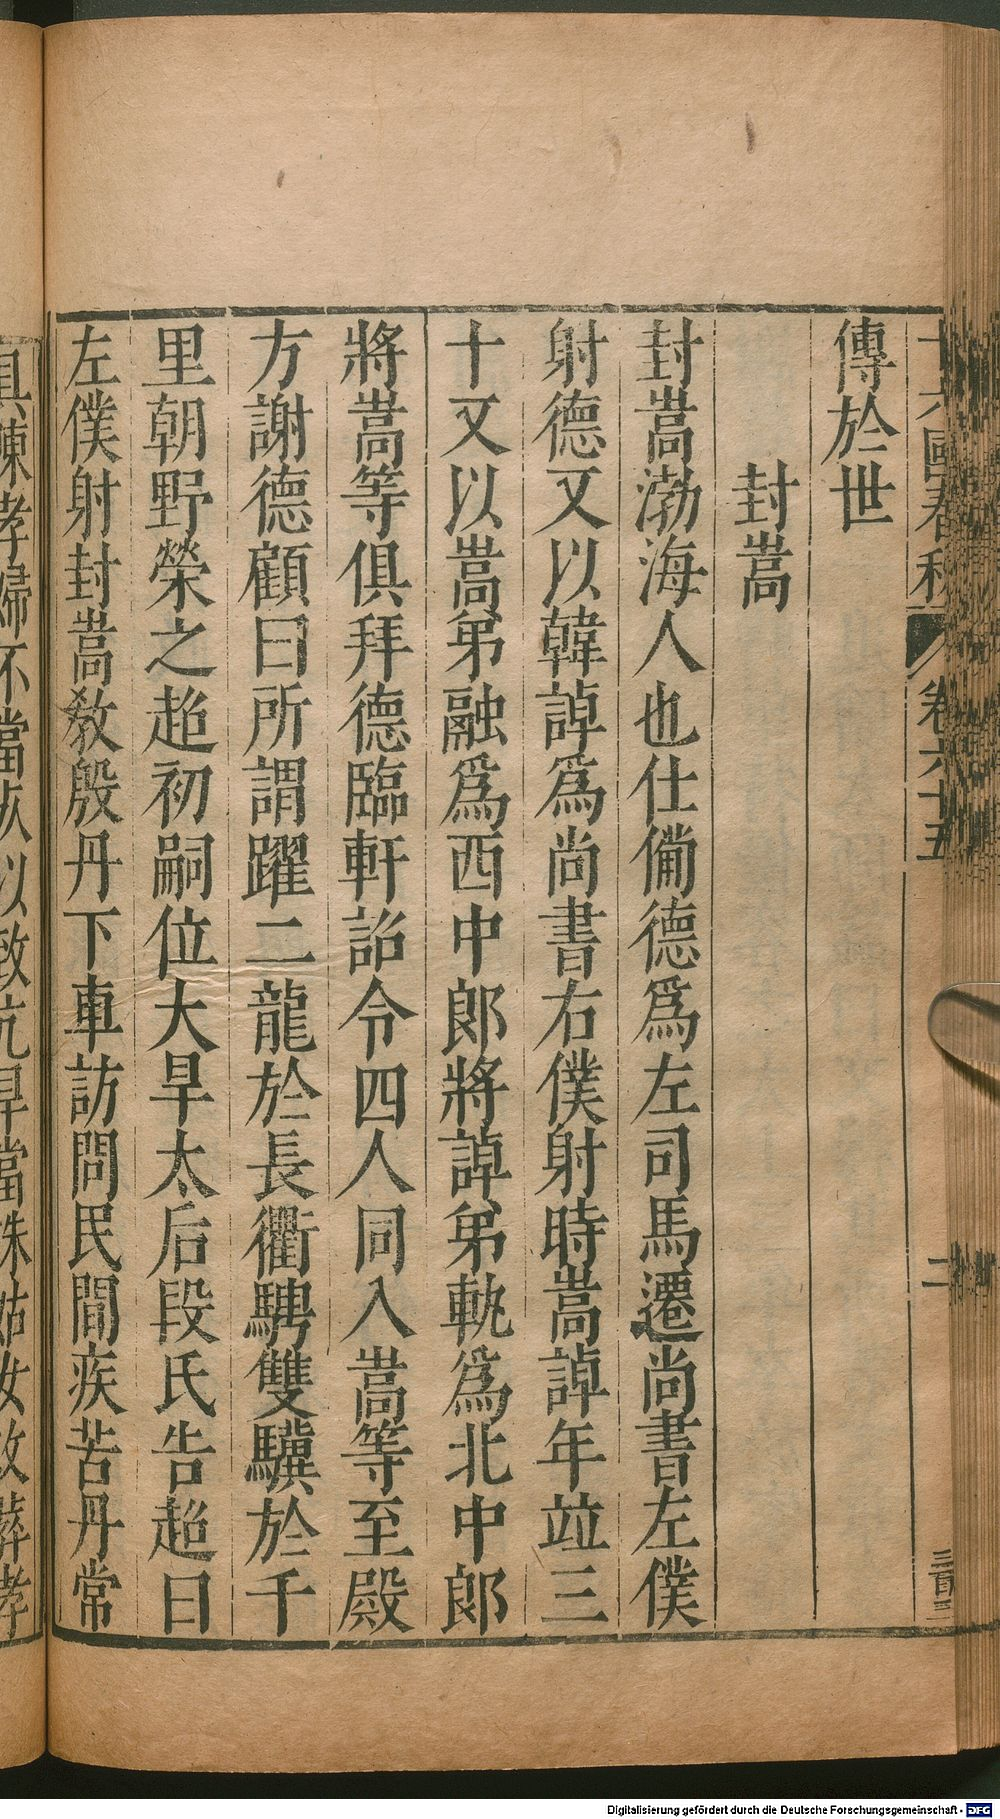 十六國春秋 卷六十五 二
傳於世
封嵩
封嵩渤海人也仕備德爲左司馬遷尚書左僕
射德又以韓𧨳爲尚書右僕射時嵩𧨳年竝三
十又以嵩弟融爲西中郎將𧨳弟軌爲北中郎
將嵩等俱拜德臨軒詔令四人同入嵩等至殿
方謝德顧曰所謂躍二龍於長衢騁雙驥於千
里朝野榮之超初嗣位大旱太后段氏告超曰
左僕射封嵩教殷丹下車訪問民間疾苦丹常
具陳孝婦不當死以致亢旱當誅姑女改葬孝
Digitalisierung gefördert durch die Deutsche Forschungsgemeinschaft - DFG